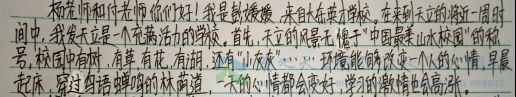 杨老师和付老师你们好！我是彭媛媛，来自大东英才学校。在来到天立的将近一周时
间中，我发天立是一个充满活力的学校。首先，天立的风景无愧于“中国最美山水校园”的称
号，校园中有树，有草有花，有湖，还有“小灰灰”……环境能够改变一个人的心情，早晨
起床，穿过鸟语蝉鸣的林荫道，一天的心情都会变好，学习的激情也会高涨。